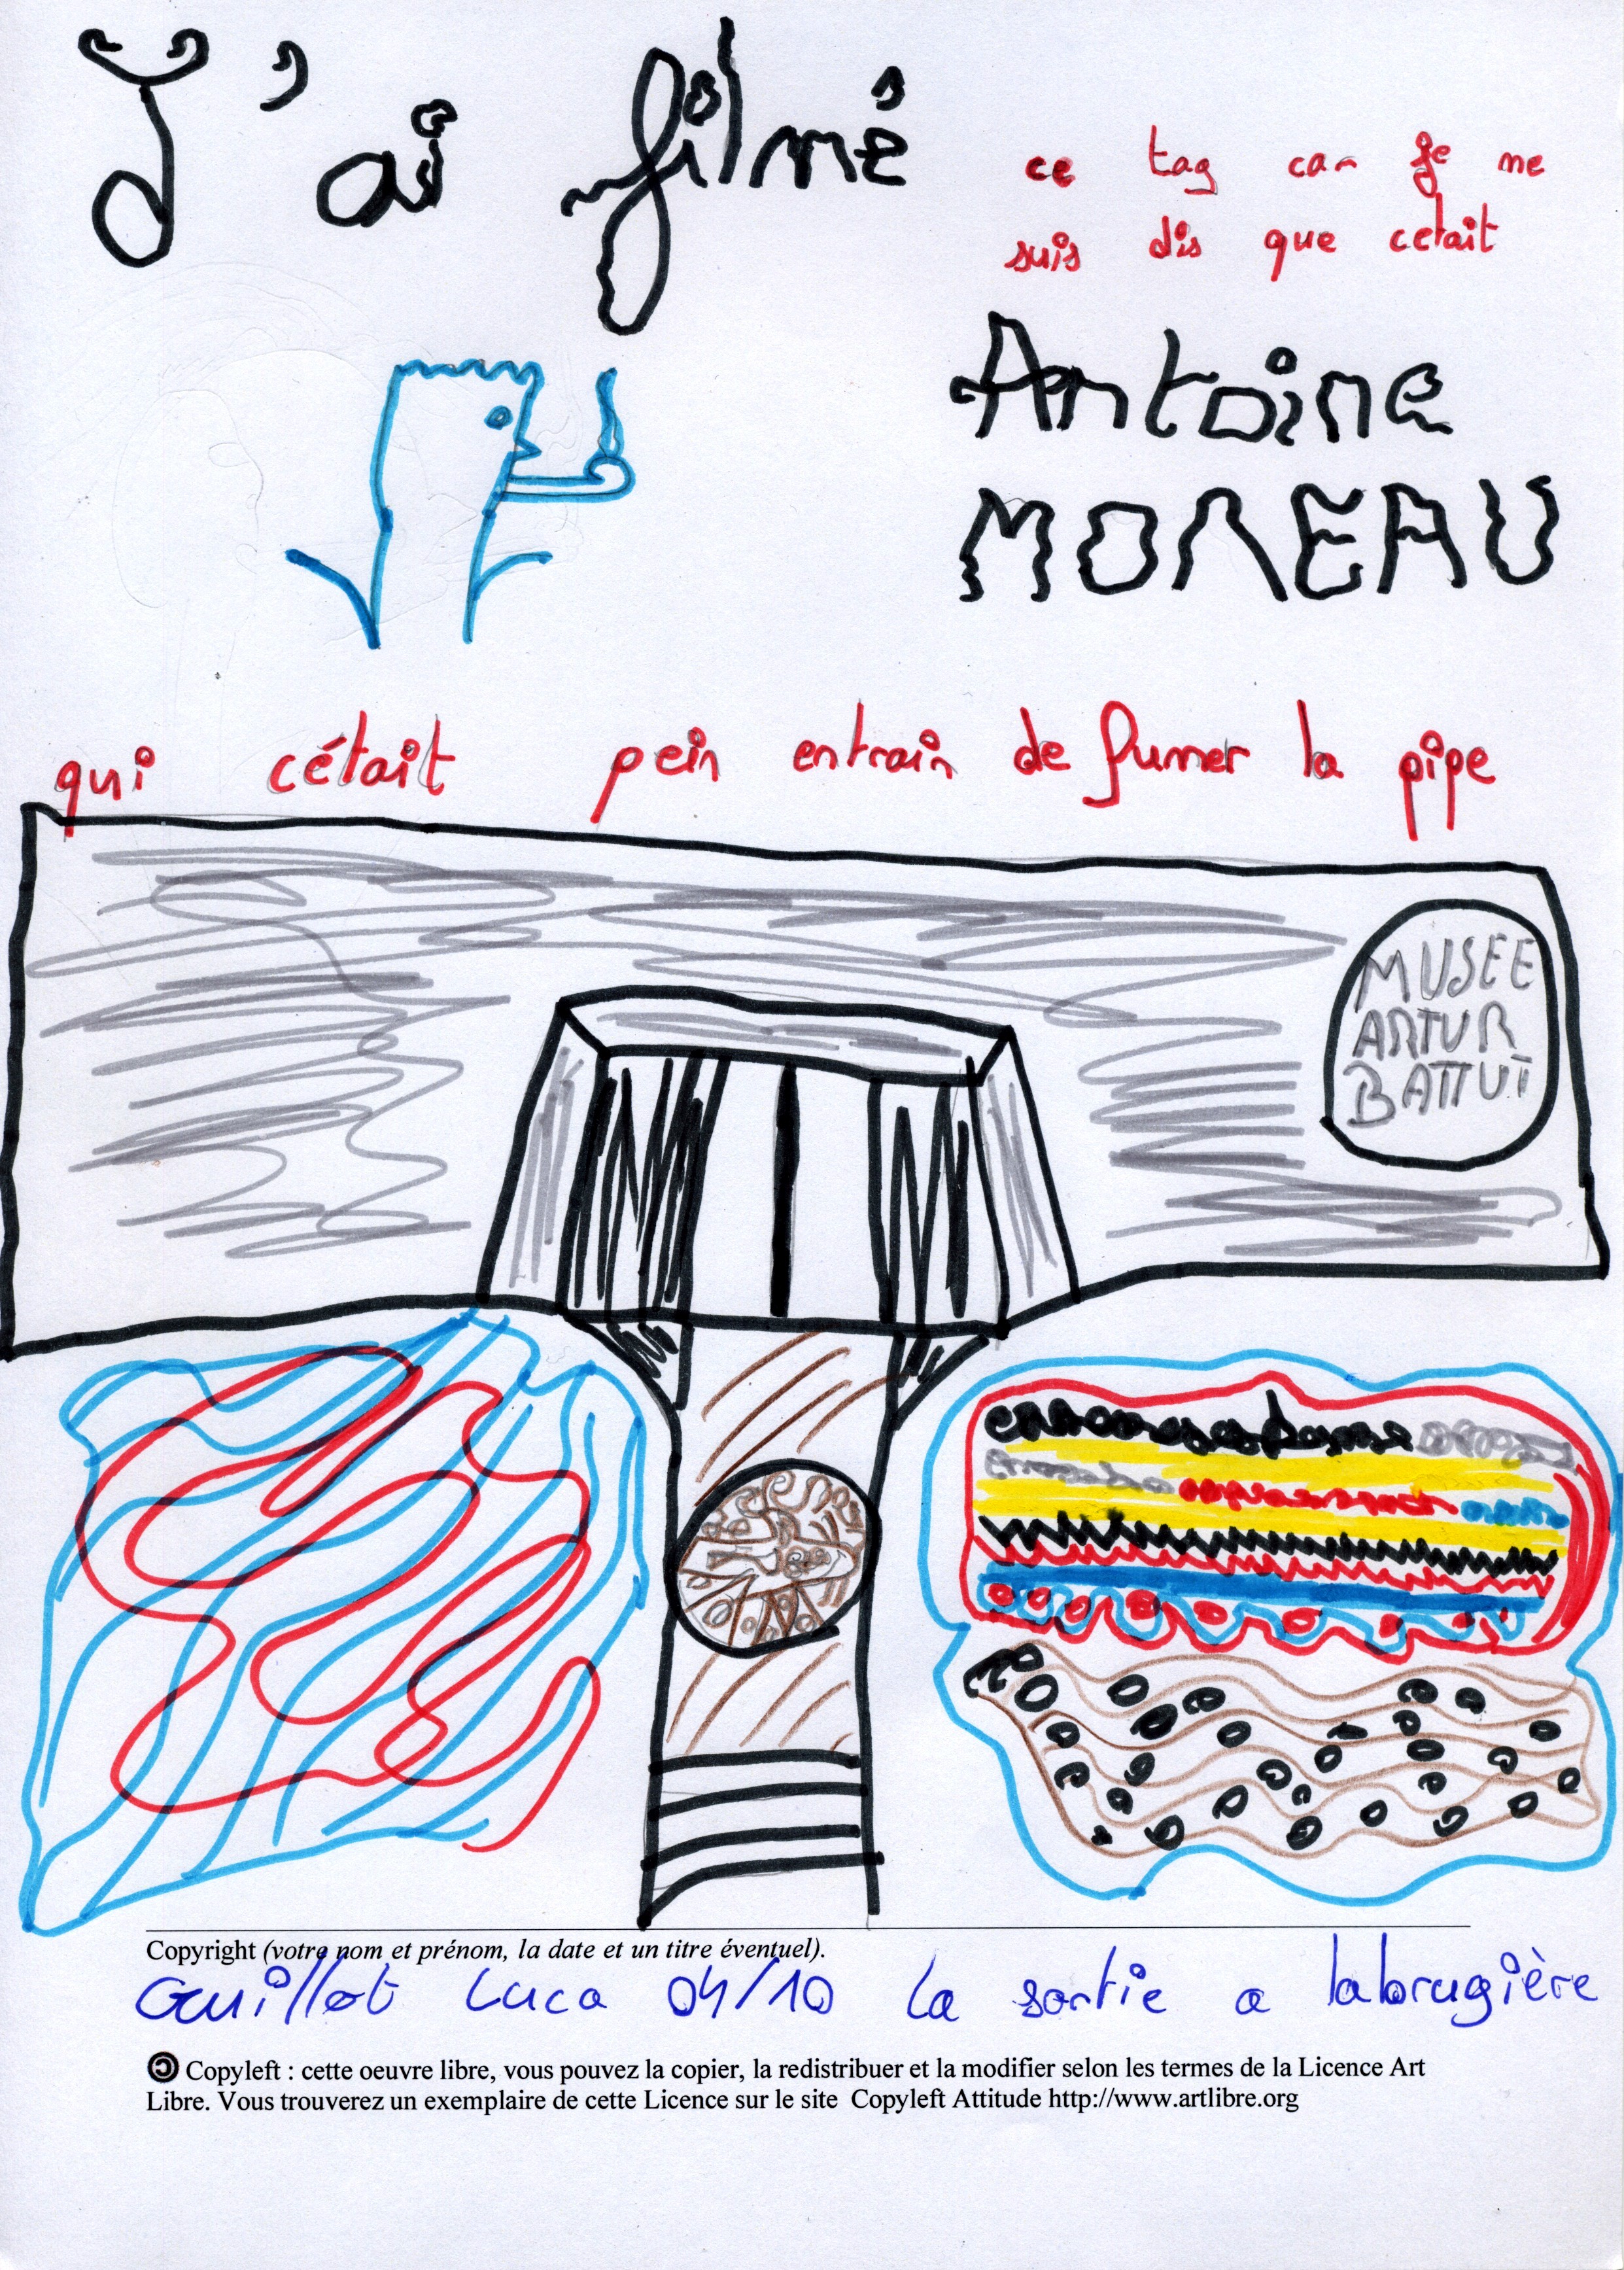 J'ai filmé
ce tag car je me
suis dis que cetait
Antoine
MOREAU
qui cétait pein entrain de fumer la pipe
MUSEE
ARTUR
BATTUT
Copyright (votre nom et prénom, la date et un titre éventuel).
Guillot Luca 04/10 la sortie a labrugière
Copyleft : cette oeuvre libre, vous pouvez la copier, la redistribuer et la modifier selon les termes de la Licence Art
Libre. Vous trouverez un exemplaire de cette Licence sur le site Copyleft Attitude http://www.artlibre.org